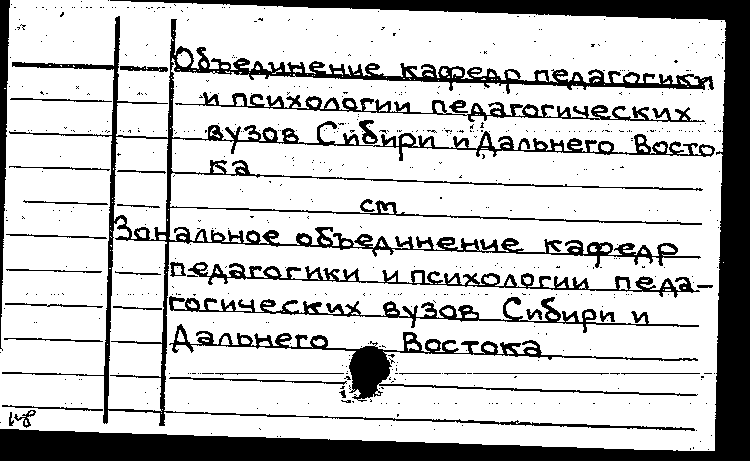 Объединение кафедр педагогики
и психологии педагогических
вузов Сибири и Дальнего Восто
ка
см.
Зональное объединение кафедр
педагогики и психологии педа-
гогических вузов Сибири и
Дальнего Востока.